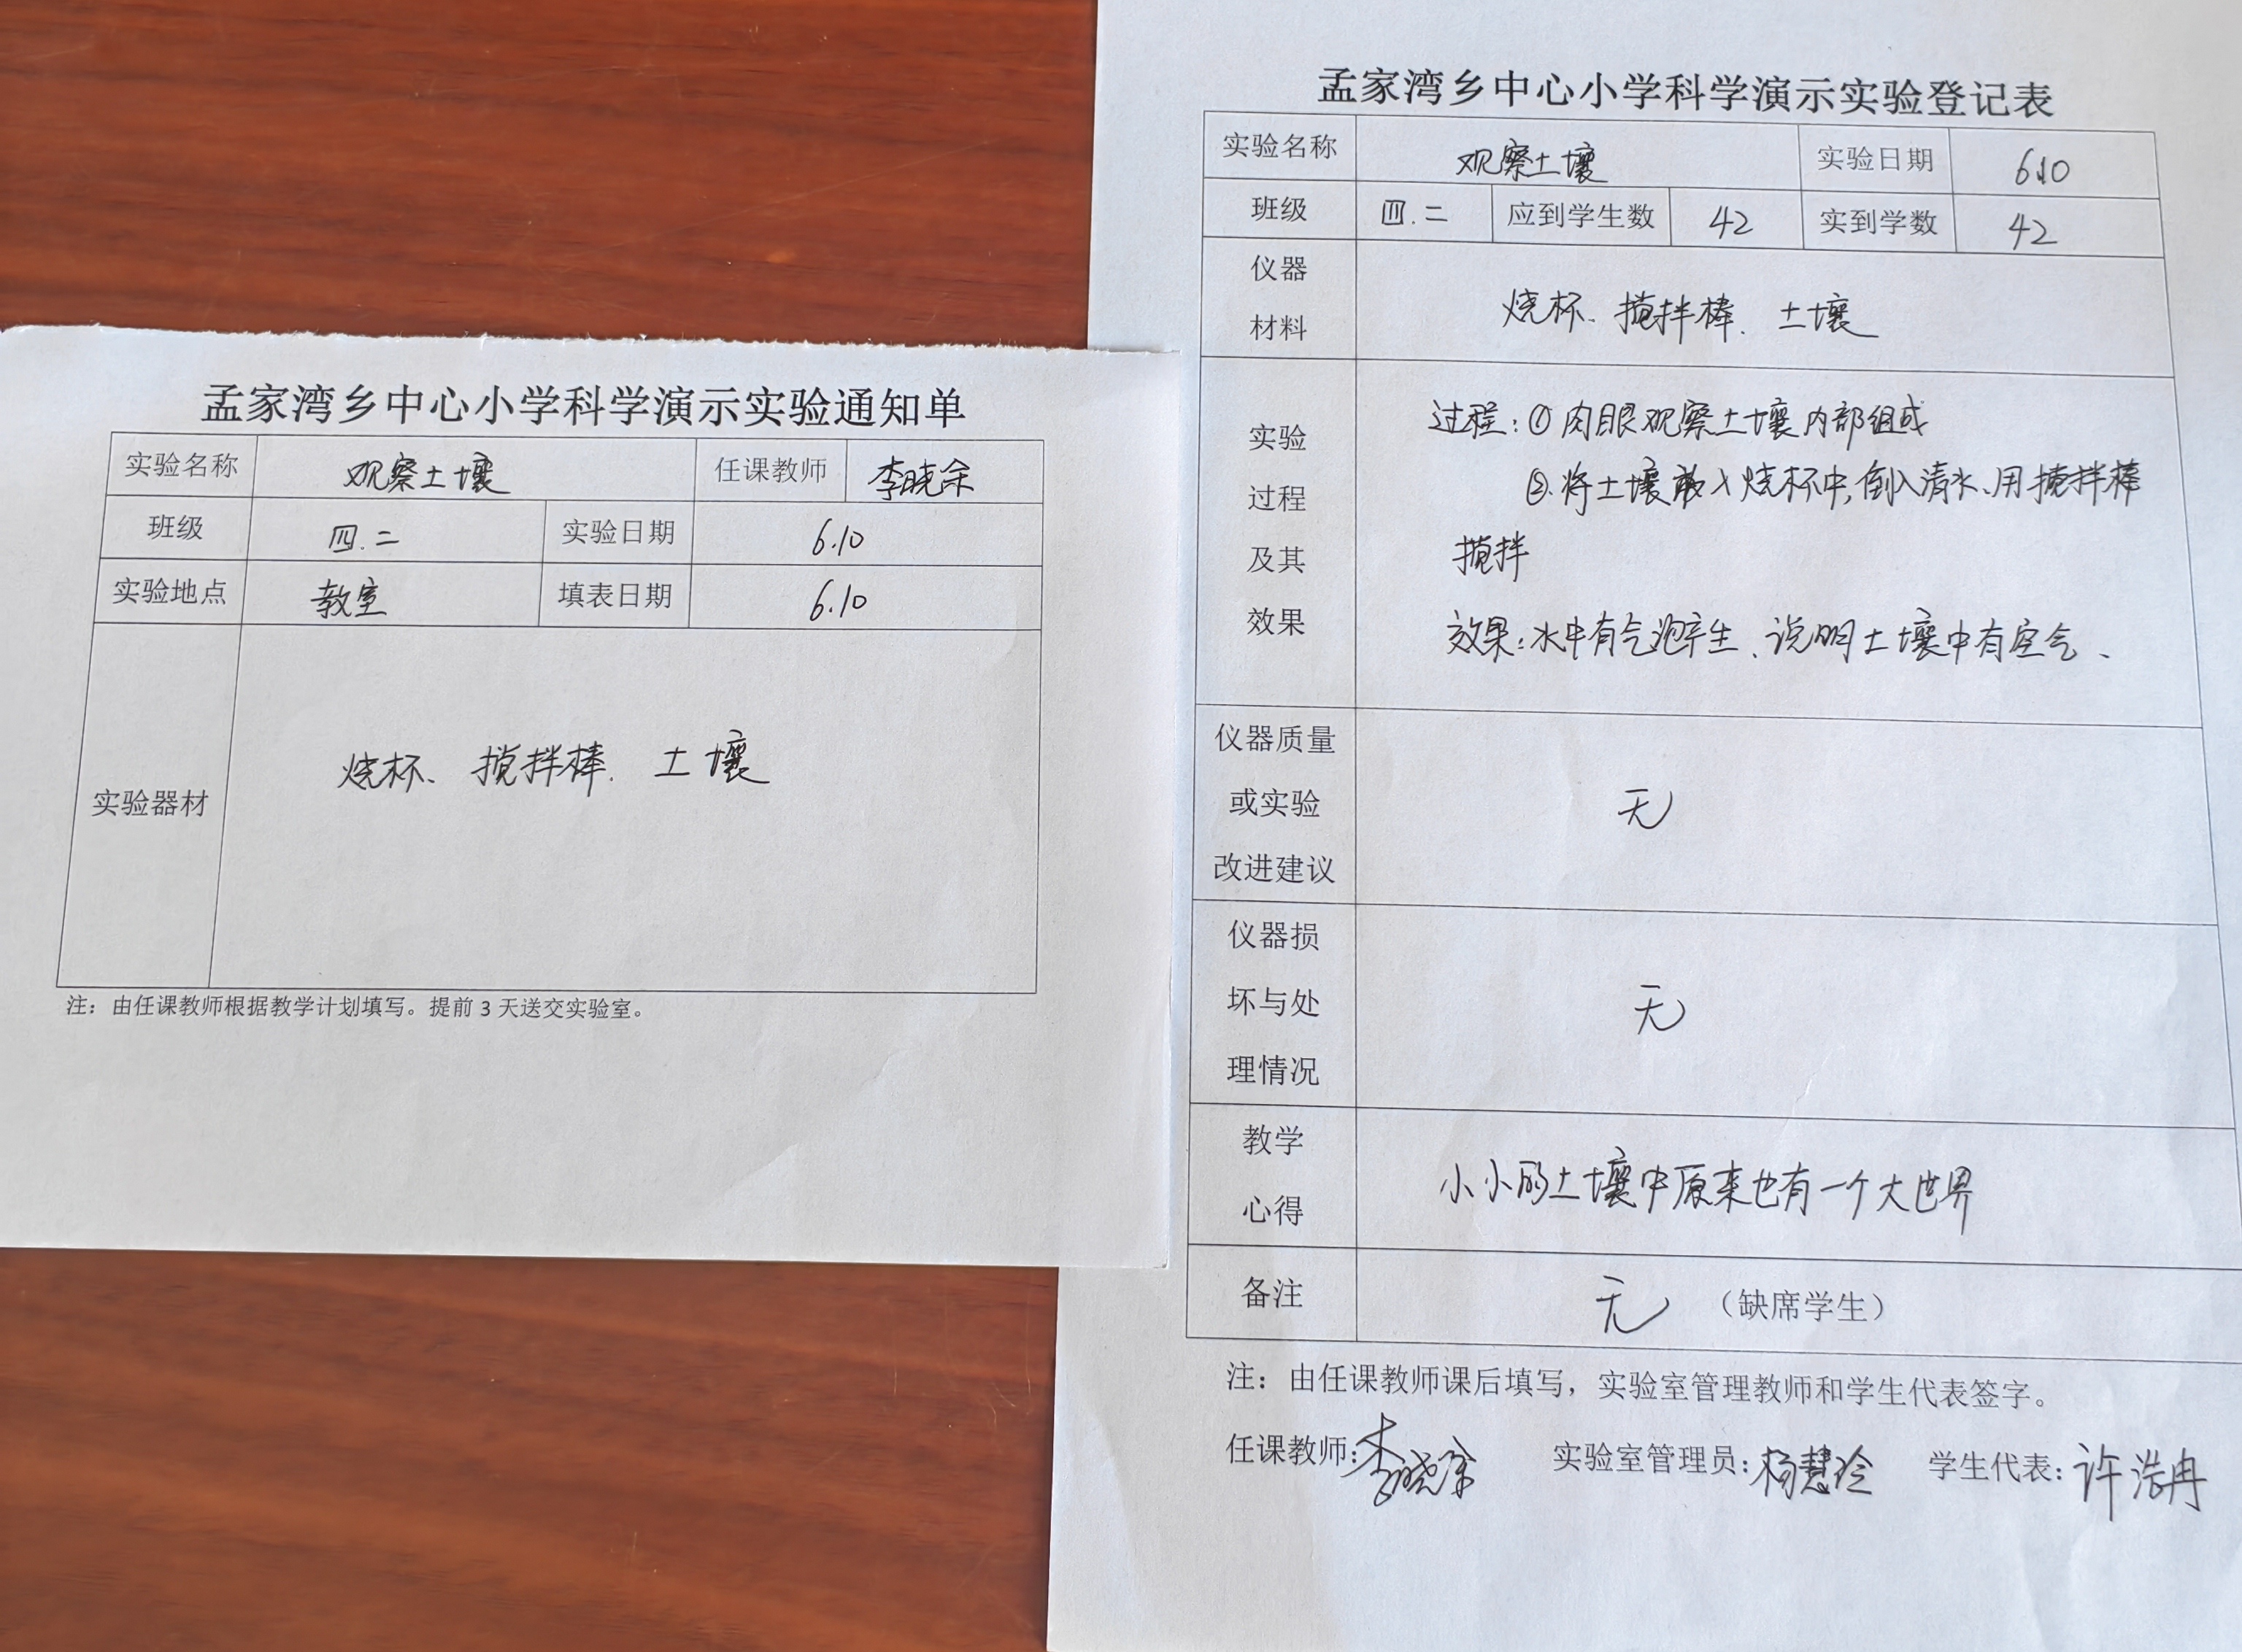 孟家湾乡中心小学科学演示实验通知单
实验名称 观察土壤 任课教师 李晓余
班级 四.二 实验日期 6.10
实验地点 教室 填表日期 6.10
实验器材 烧杯、搅拌棒、土壤
注：由任课教师根据教学计划填写。提前 3 天送交实验室。
孟家湾乡中心小学科学演示实验登记表
实验名称 观察土壤 实验日期 6.10
班级 四.二 应到学生数 42 实到学数 42
仪器
材料
烧杯、搅拌棒、土壤
实验
过程
及其
效果
过程：①肉眼观察土壤内部组成
②.将土壤放入烧杯中,倒入清水、用搅拌棒
搅拌
效果：水中有气泡产生、说明土壤中有空气、
仪器质量
或实验
改进建议
无
仪器损
坏与处
理情况
无
教学
心得
小小的土壤中原来也有一个大世界
备注 无 （缺席学生）
注：由任课教师课后填写，实验室管理教师和学生代表签字。
任课教师：李晓余 实验室管理员：杨慧玲 学生代表：许浩冉